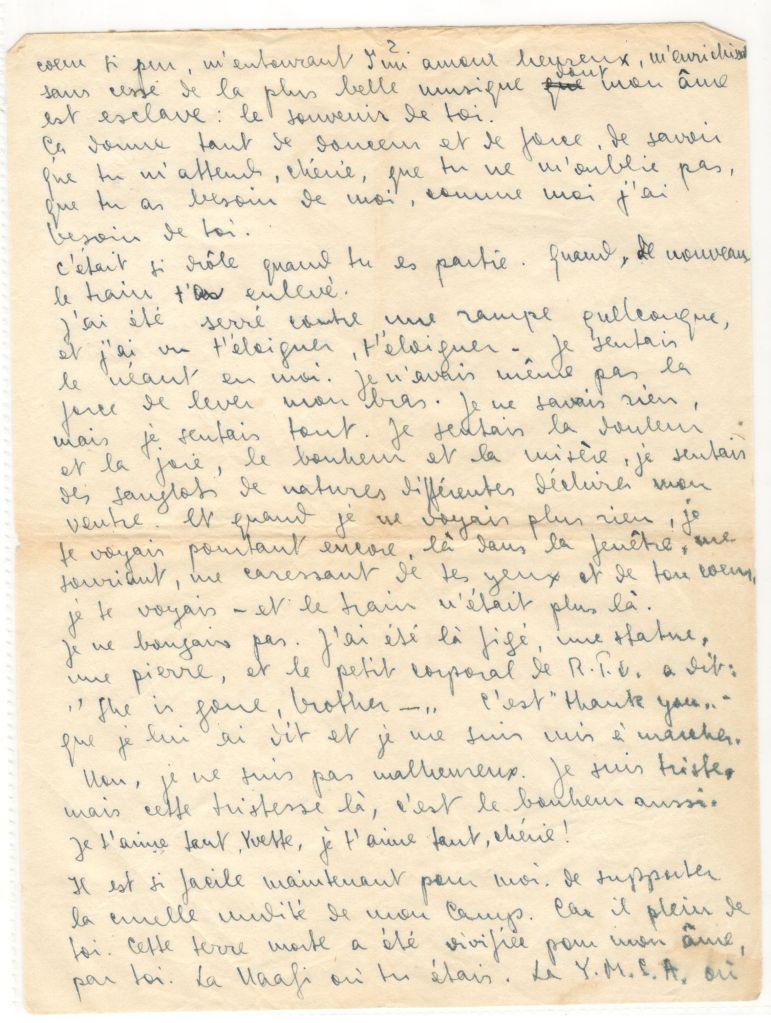 2.
coeur si pur, m'entourant d'un amour heureux, m'enrichissant
sans cesse de la plus belle musique dont mon âme
est esclave : le souvenir de toi.
Ça donne tant de douceur et de force, de savoir
que tu m'attends, chérie, que tu ne m'oublie pas,
que tu as besoin de moi, comme moi j'ai
besoin de toi.
C'était si drôle quand tu es partie. Quand, de nouveau
le train t'a enlevé.
J'ai été serré contre une rampe quelconque,
et j'ai vu t'éloigner, t'éloigner - Je sentais
le néant en moi. Je n'avais même pas la
force de lever mon bras. Je ne savais rien,
mais je sentais tout. Je sentais la douleur
et la joie, le bonheur et la misère, je sentais
des sanglots de natures différentes déchirer mon
ventre. Et quand je ne voyais plus rien, je
te voyais pourtant encore, là dans la fenêtre, me
souriant, me caressant de tes yeux et de ton coeur,
je te voyais - et le train n'était plus là.
Je ne bougais pas. J'ai été là figé, une statue,
une pierre, et le petit corporal de R.T.O. a dit:
"She is gone, brother -" C'est "thank you" -
que je lui ai dit et je me suis mis à marcher.
Non, je ne suis pas malheureux. Je suis triste,
mais cette tristesse là, c'est le bonheur aussi.
Je t'aime tant, Yvette, je t'aime tant, chérie!
Il est si facile maintenant pour moi de supporter
la cruelle nudité de mon Camp. Car il plein de
toi. Cette terre morte a été vivifiée pour mon âme,
par toi. La Naafi où tu étais. La Y.M.C.A. où